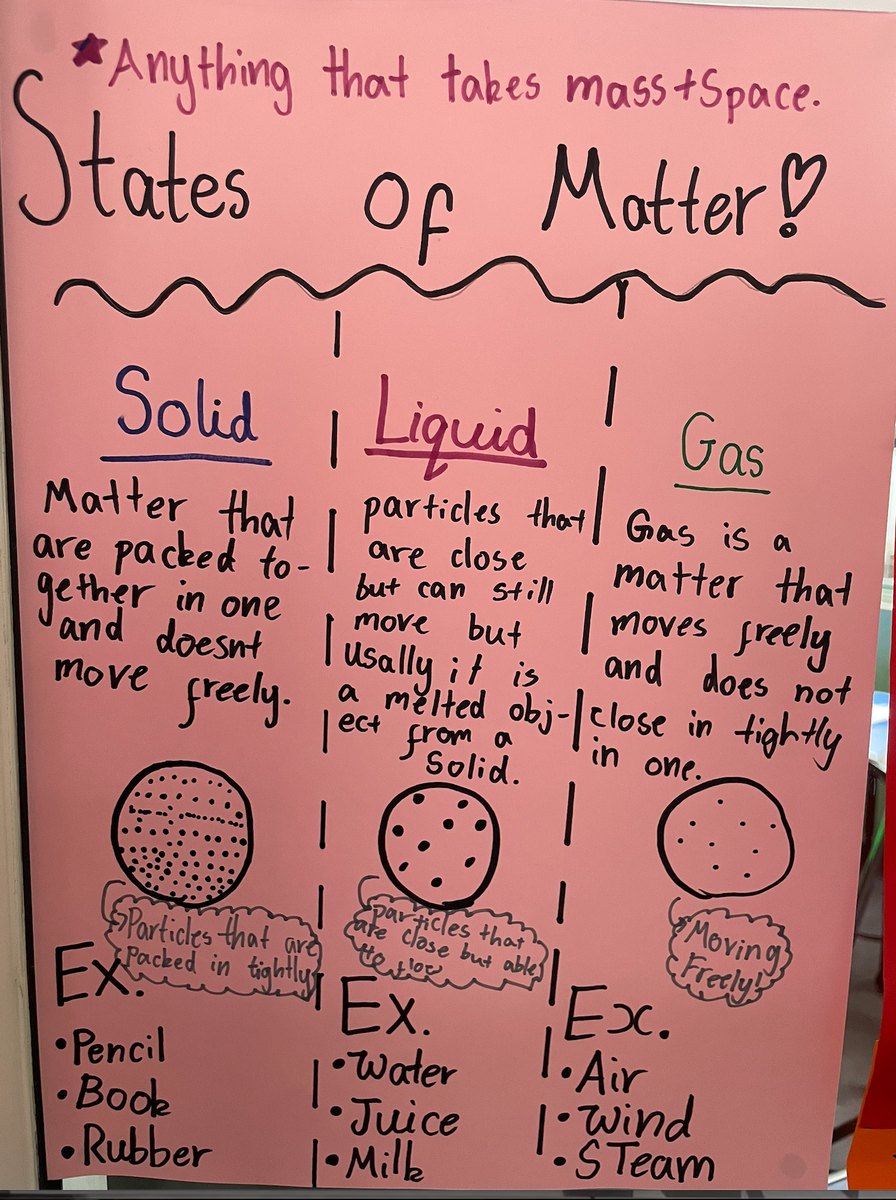 *Anything that takes mass+Space.
States Of Matter!
Solid
Matter that
are packed to-
gether in one
and doesnt
move freely.
Particles that are
Packed in tightly
Ex.
•Pencil
•Book
•Rubber
Liquid
particles that
are close
but can still
move but
usally it is
a melted obj-
ect from a
Solid.
particles that
are close but able
to
Ex.
•Water
•Juice
•Milk
Gas
Gas is a
matter that
moves freely
and does not
close in tightly
in one.
Moving
Freely!
Ex.
•Air
•Wind
•STeam